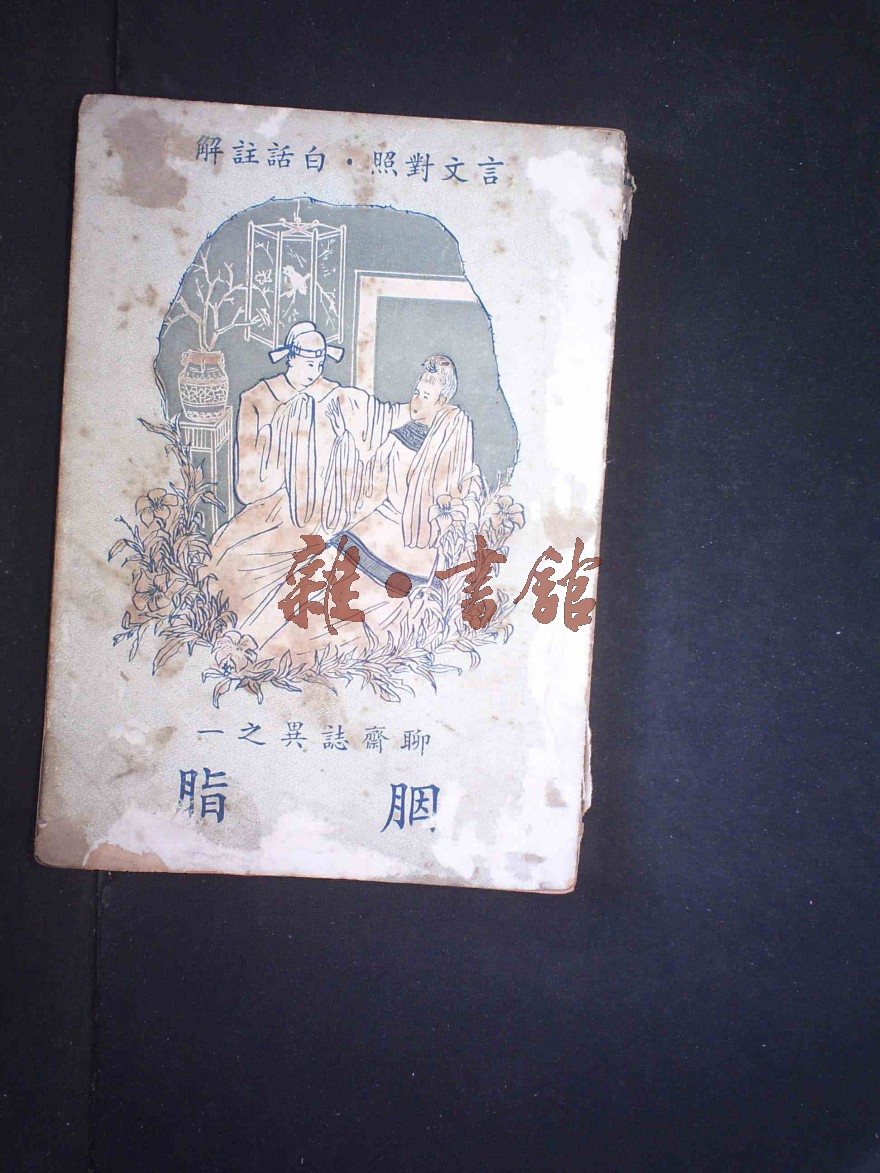 言文對照·白話註解
雜·書舘
聊齋誌異之一
胭脂